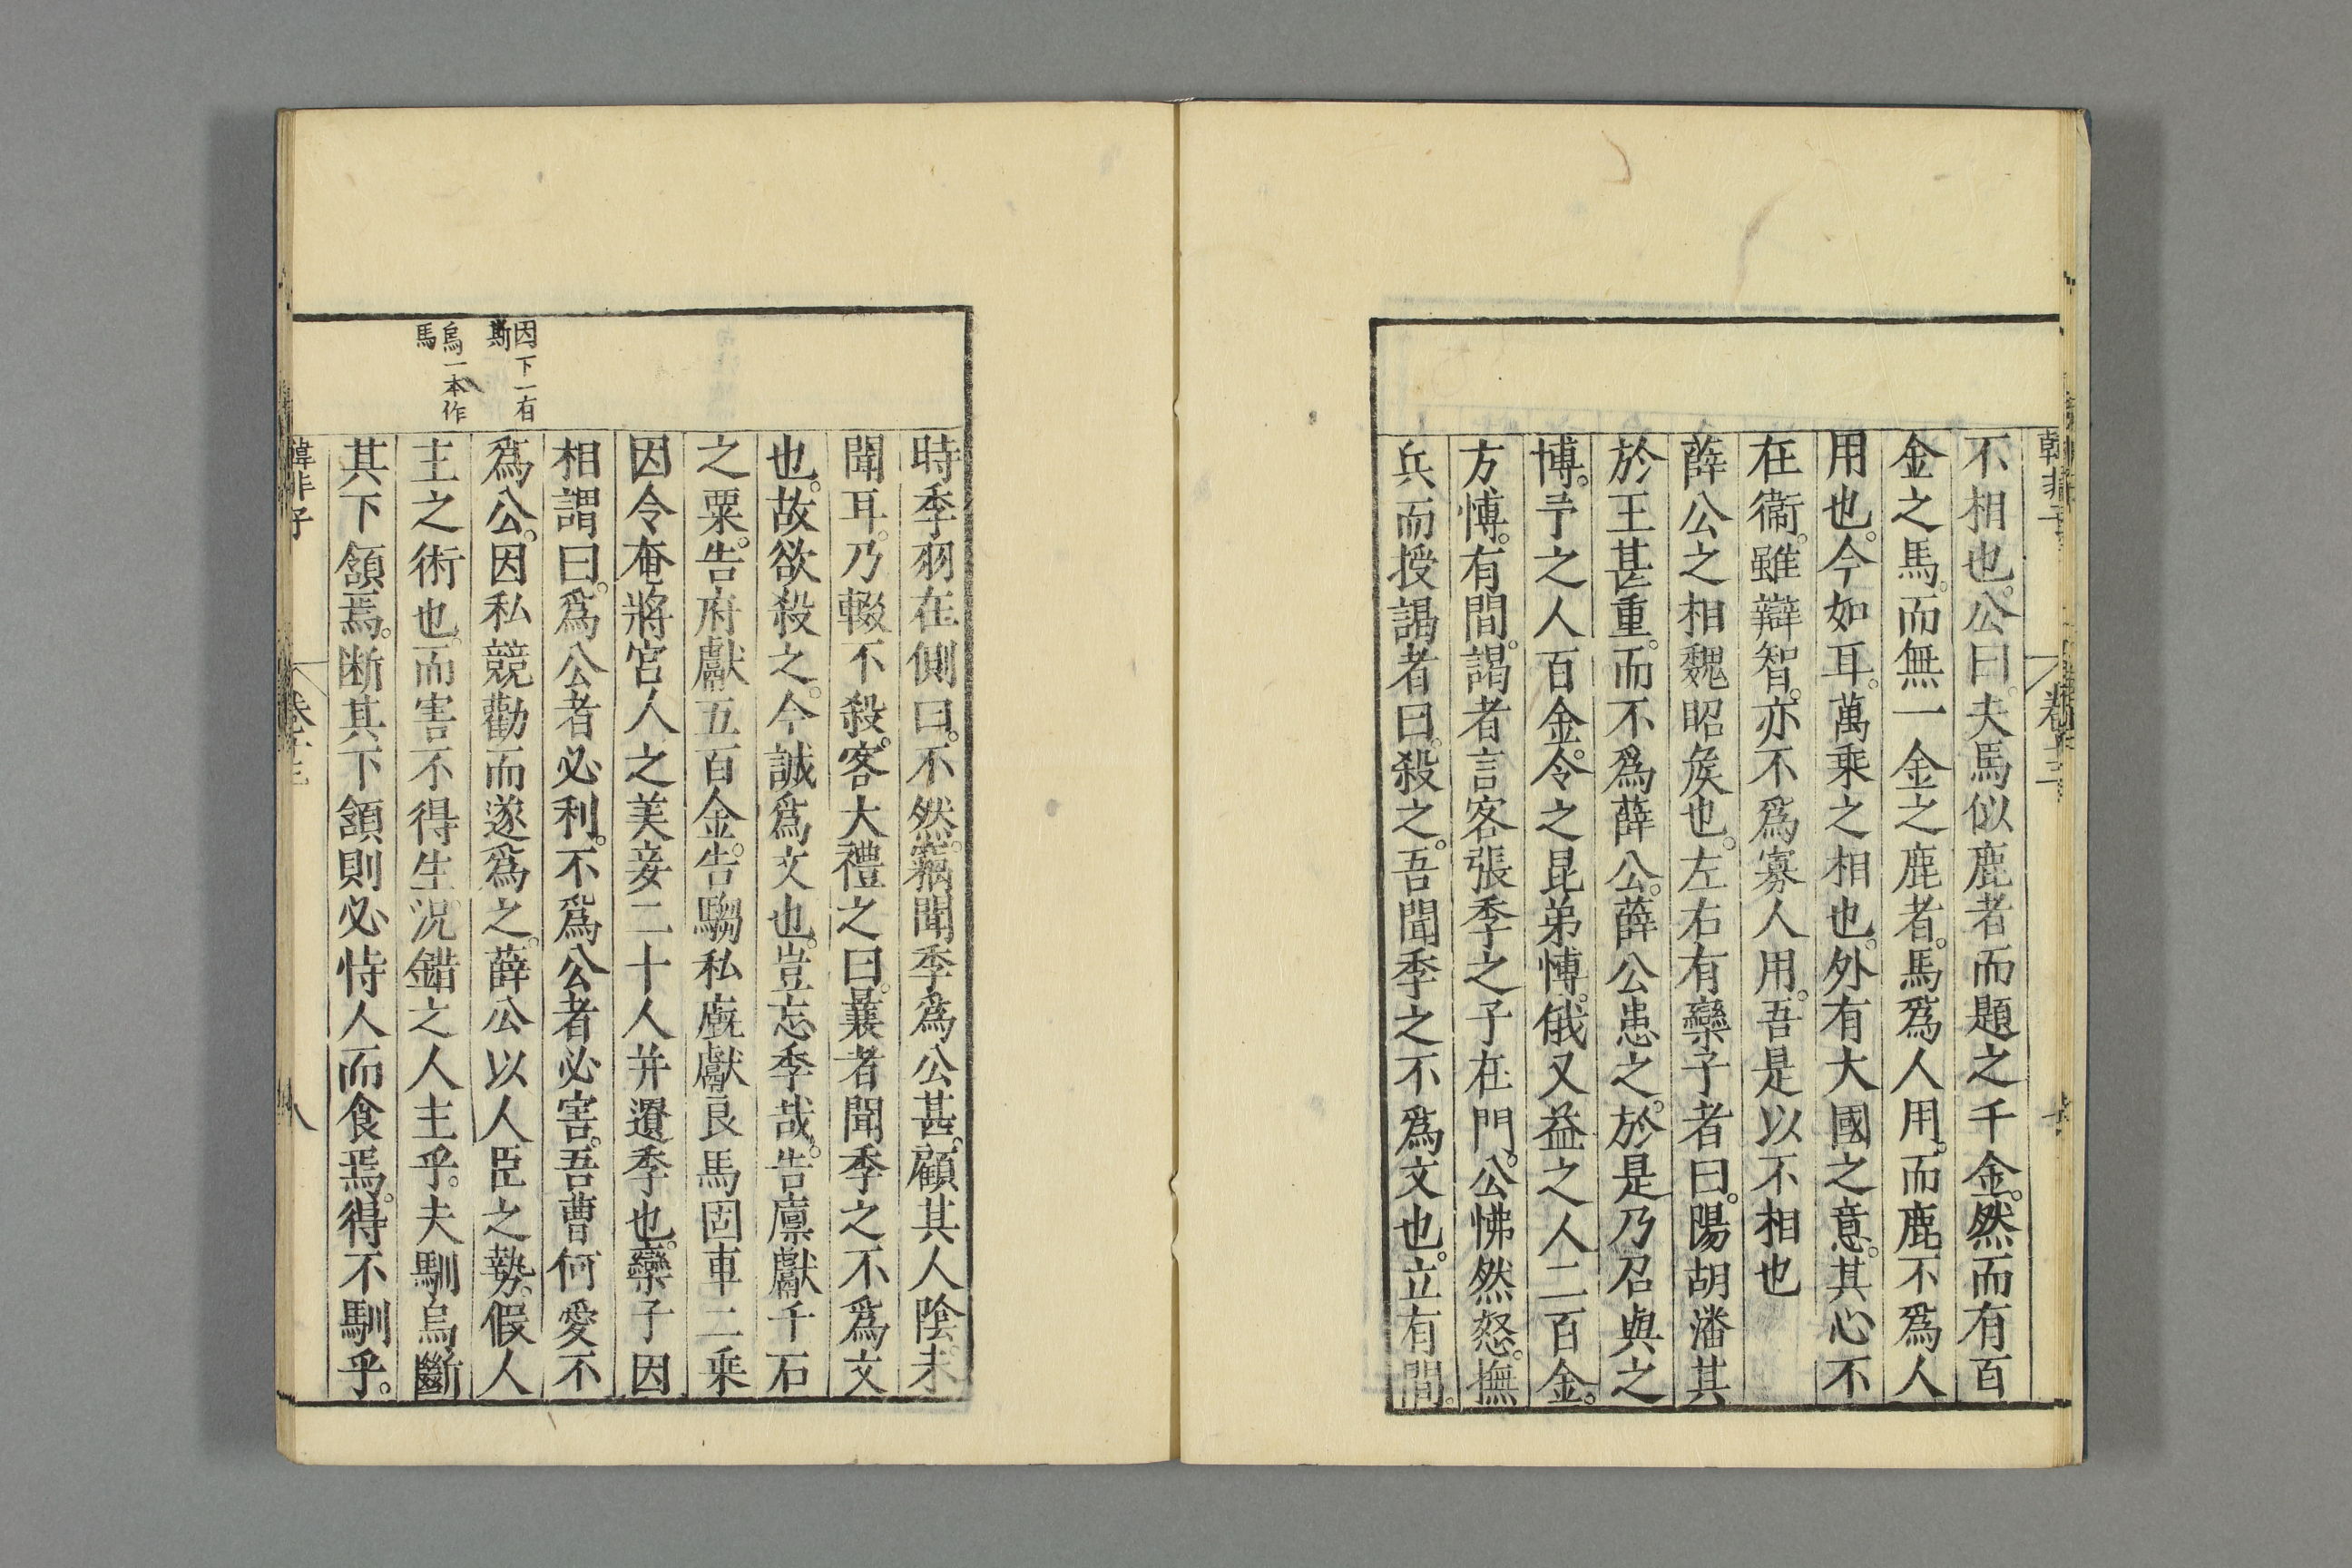 韓非子 卷十三
不相也。公曰。夫馬似鹿者而題之千金。然而有百
金之馬。而無一金之鹿者。馬爲人用。而鹿不爲人
用也。今如耳。萬乘之相也。外有大國之意。其心不
在衞。雖辯智。亦不爲寡人用。吾是以不相也
薛公之相魏昭矦也。左右有欒子者曰。陽胡潘其
於王甚重。而不爲薛公。薛公患之。於是乃召與之
博。予之人百金。令之昆弟博。俄又益之人二百金。
方博。有間。謁者言客張季之子在門。公怫然怒。撫
兵而授謁者曰。殺之。吾聞季之不爲文也。立有間。
時季羽在側曰。不然。竊聞季爲公甚。顧其人陰未
聞耳。乃輟不殺。客大禮之曰。曩者聞季之不爲文
也。故欲殺之。今誠爲文也。豈忘季哉。告廩獻千石
之粟。告府獻五百金。告騶私廐獻良馬固車二乗
因令奄將宮人之美妾二十人并遺季也。欒子因
相謂曰。爲公者必利。不爲公者必害。吾曹何愛不
爲公。因私競勸而遂爲之。薛公以人臣之勢。假人
主之術也。而害不得生。況錯之人主乎。夫馴烏斷
其下頷焉。断其下頷則必恃人而食焉。得不馴乎。
因下一有
斯
烏一本作
馬
韓非子 卷十三 八